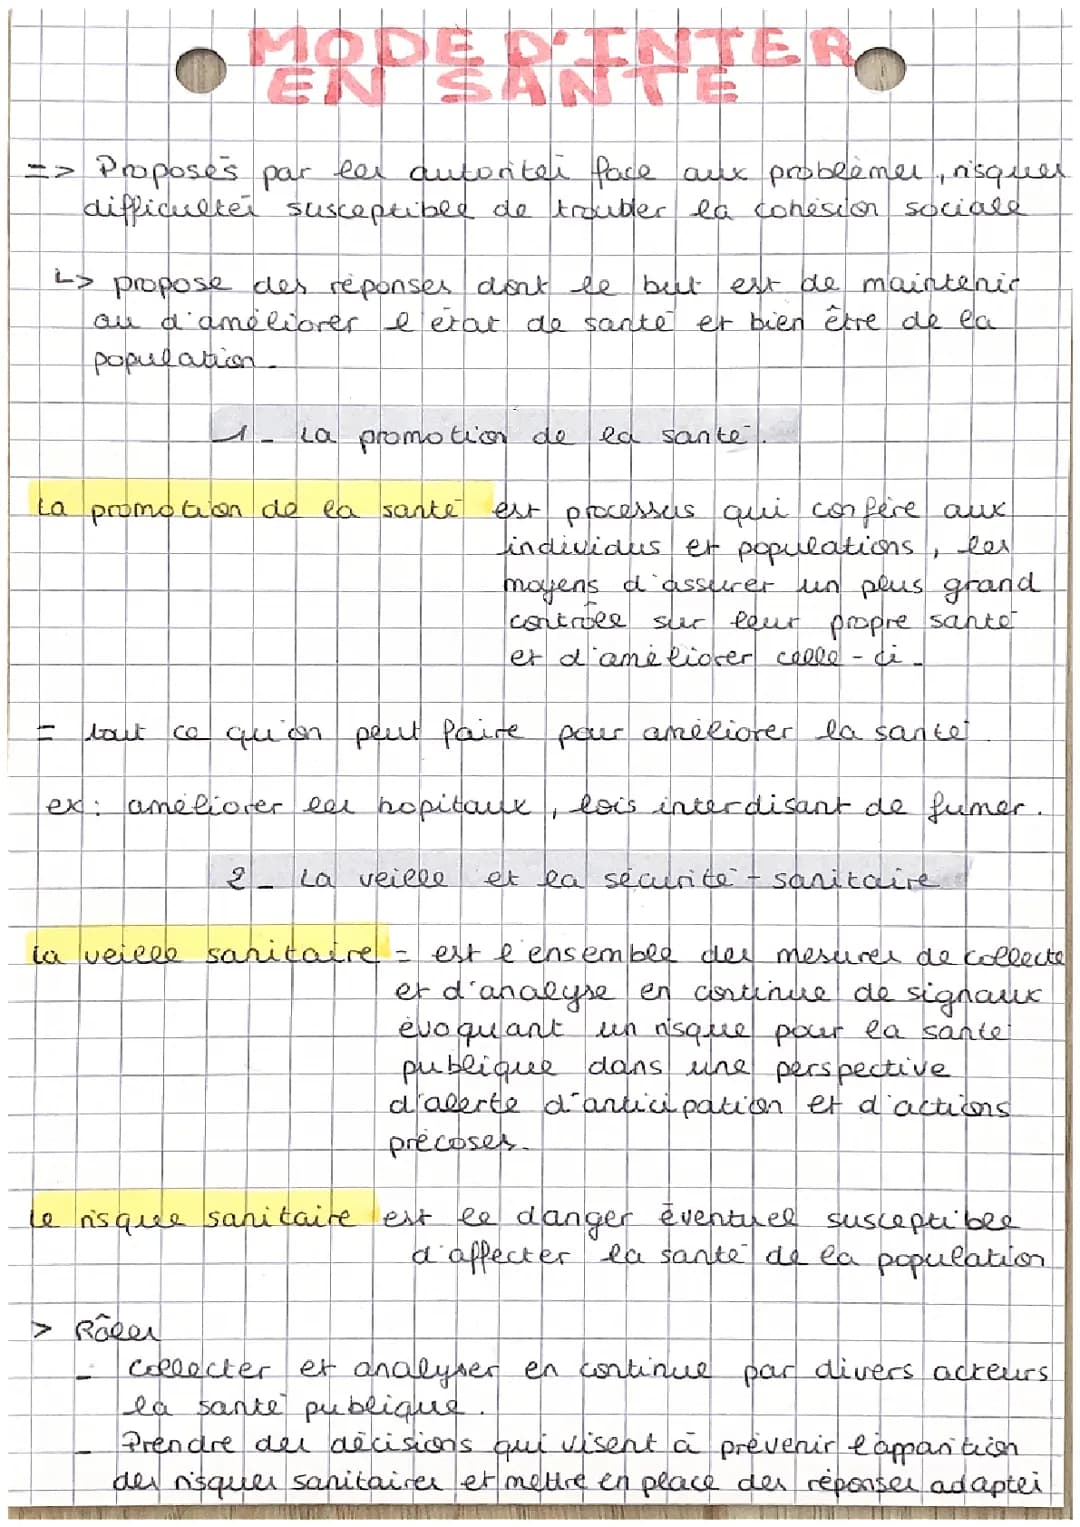 MODE D'INTER
EN SANTE
=> Proposés par les autorités face aux problèmes, risques
difficultés susceptible de troubler la cohésion sociale
↳ propose des réponses dont le but est de maintenir
ou d'améliorer l'état de santé et bien être de la
population.
1- La promotion de la santé.
La promotion de la santé est processus qui confère aux
individus et populations, les
moyens d'assurer un plus grand
contrôle sur leur propre santé
et d'améliorer celle-ci.
= tout ce qu'on peut faire pour améliorer la santé.
ex: améliorer les hopitaux, lois interdisant de fumer.
2- La veille et la sécurité-sanitaire
La veille sanitaire = est l'ensemble des mesures de collecte
et d'analyse en continue de signaux
évoquant un risque pour la santé
publique dans une perspective
d'alerte d'anticipation et d'actions
précoses.
Le risque sanitaire est le danger éventuel susceptible
d'affecter la santé de la population
> Rôles
- collecter et analyser en continue par divers acteurs
la santé publique.
- Prendre des décisions qui visent à prévenir l'apparition
des risques sanitaires et mettre en place des réponses adaptés